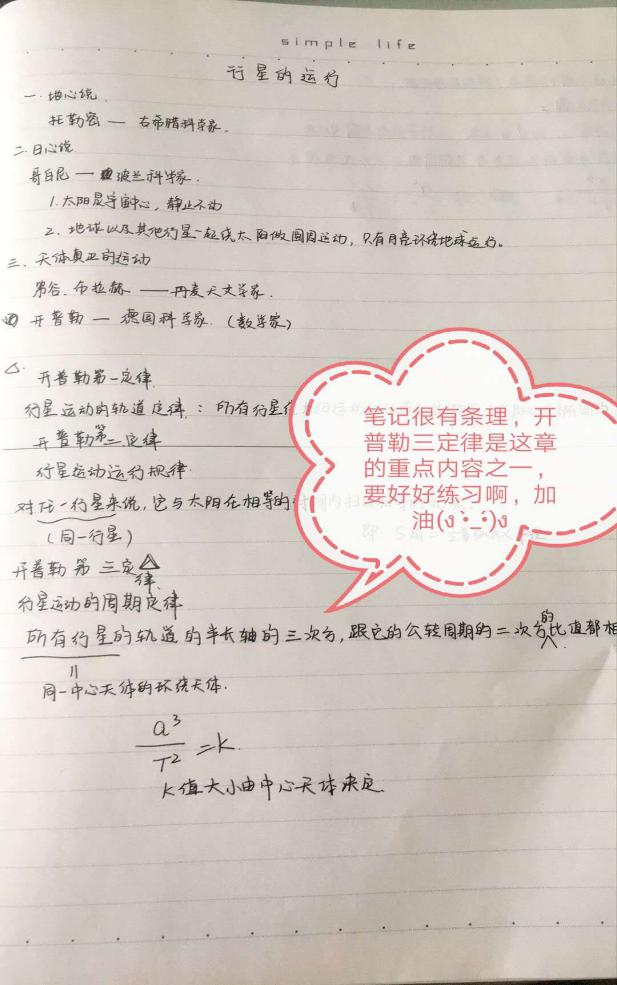 simple life
行星的运行
一.地心说
托勒密 — 古希腊科学家.
二.日心说
哥白尼 — 波兰科学家.
1.太阳是宇宙中心,静止不动
2.地球以及其他行星一起绕太阳做圆周运动,只有月亮环绕地球运行。
三.天体真正的运动
第谷.布拉赫 ——丹麦天文学家.
开普勒 — 德国科学家.(数学家)
△.开普勒第一定律
行星运动的轨道定律:所有行星
开普勒第二定律
行星运动运行规律
对任一行星来说,它与太阳在相等的
(同一行星)
开普勒第三定律
行星运动的周期定律
所有行星的轨道的半长轴的三次方,跟它的公转周期的二次方的比值都相
同一中心天体的环绕天体.
a³/T²=k.
K值大小由中心天体决定
笔记很有条理,开
普勒三定律是这章
的重点内容之一,
要好好练习啊,加
油(ง •̀_•́)ง